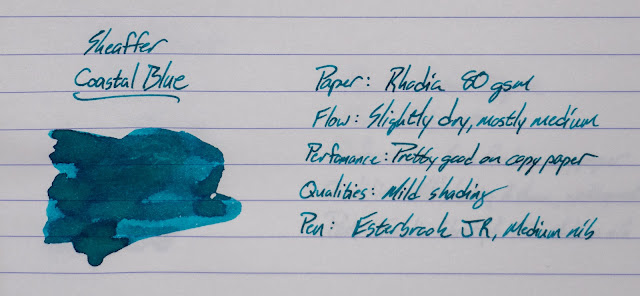 Sheaffer
Coastal Blue
Paper: Rhodia 80 gsm
Flow: Slightly dry, mostly medium
Perfomance: Pretty good on copy paper
Qualities: Mild shading
Pen: Esterbrook JR, Medium nib